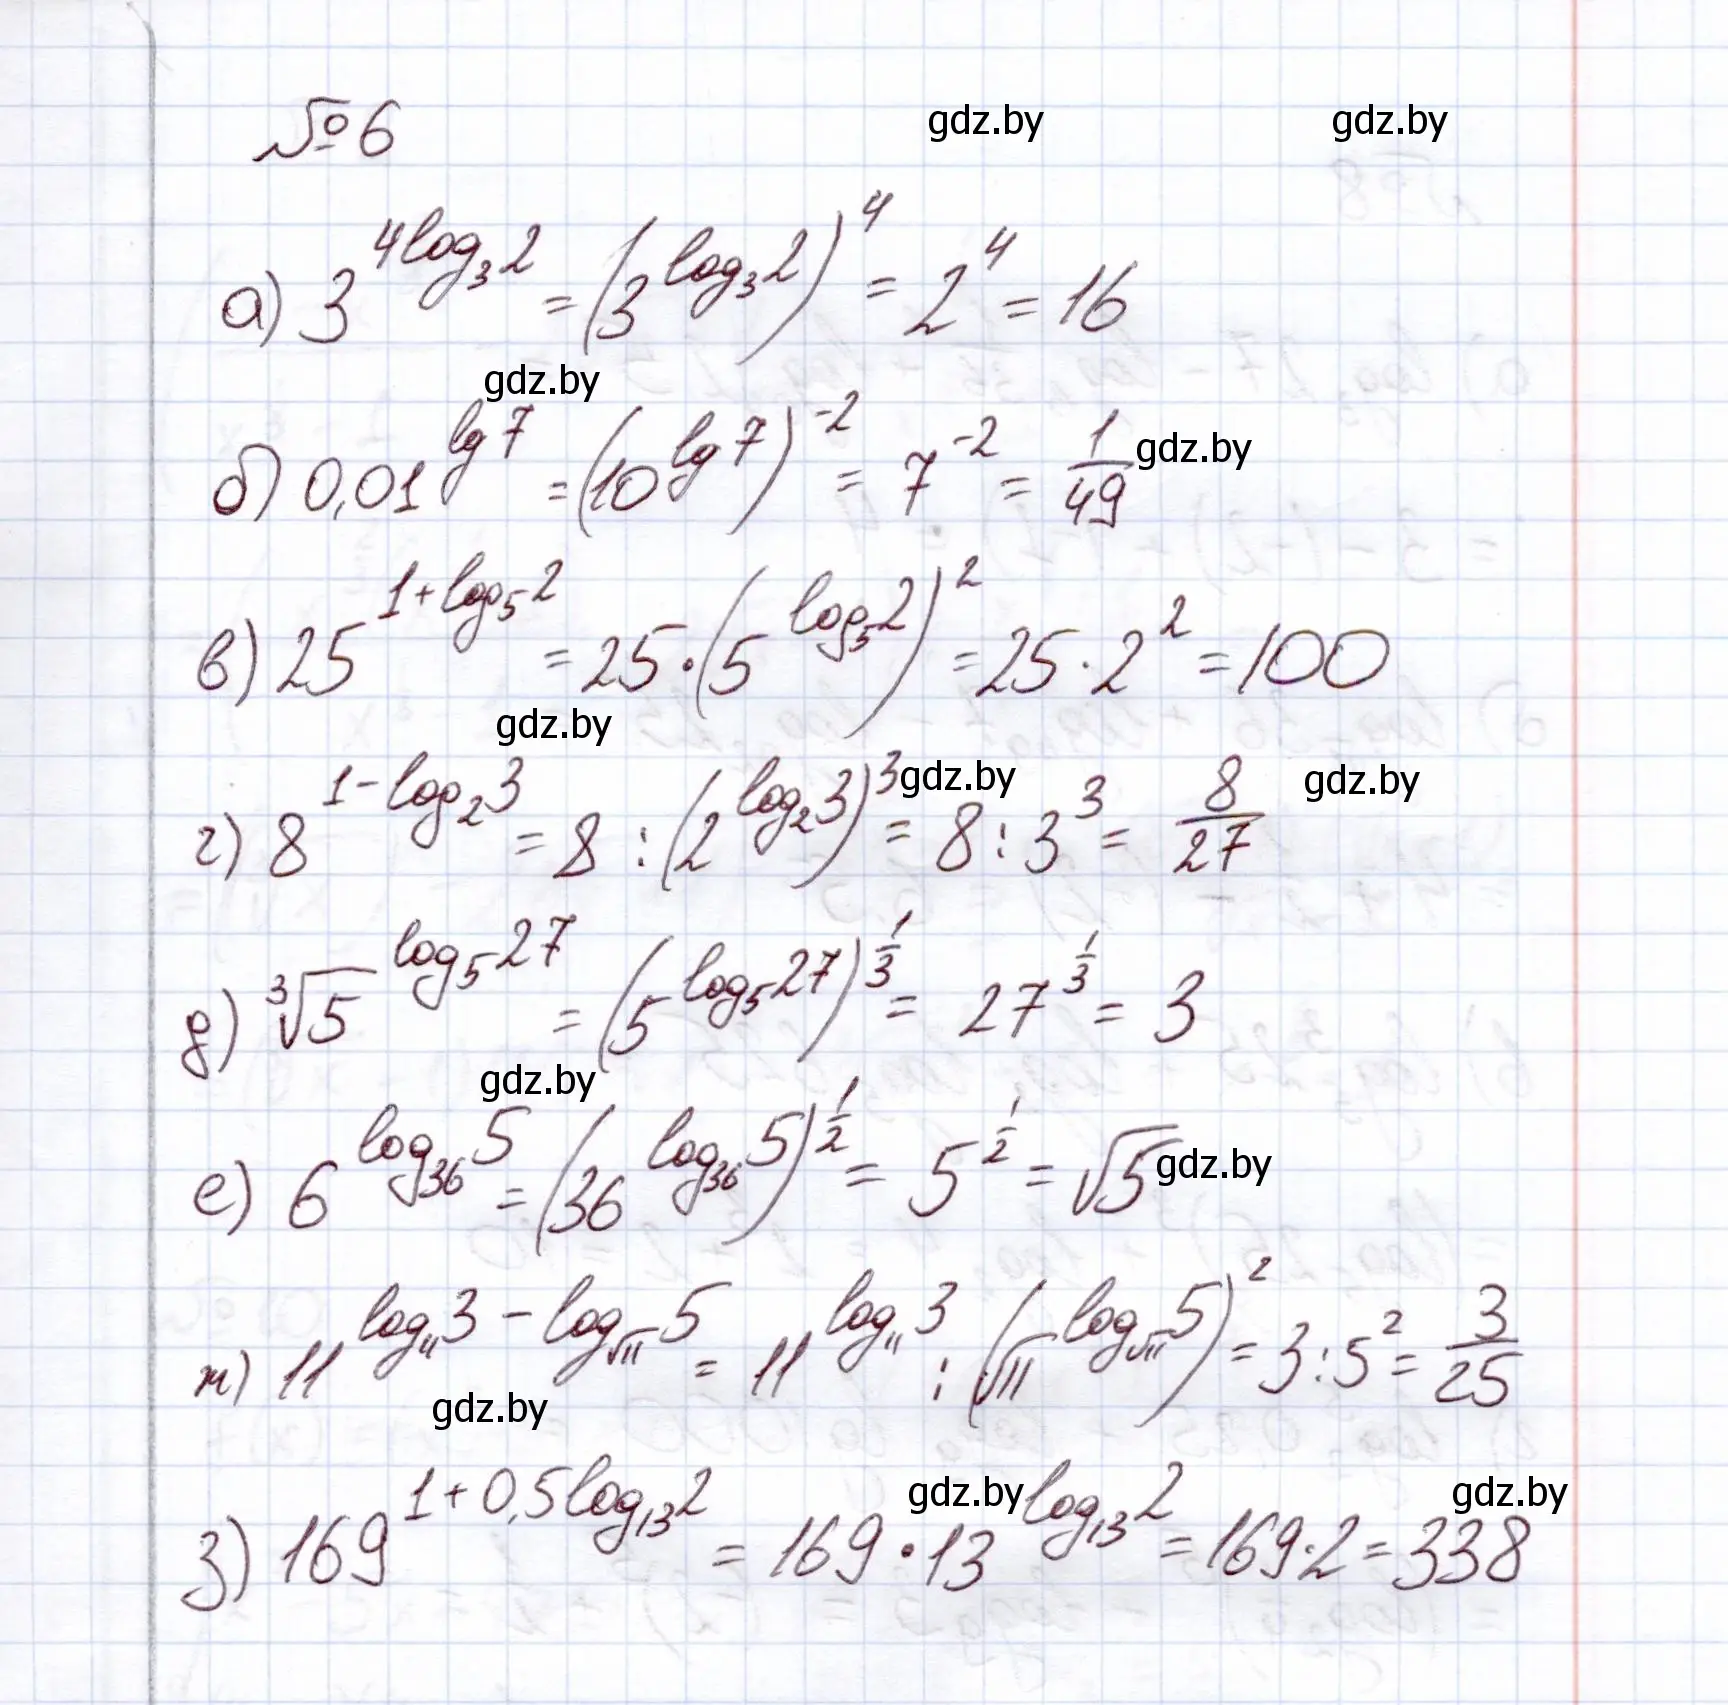 №6
gdz.by gdz.by
а) 3^{4log_3 2} = (3^{log_3 2})^4 = 2^4 = 16
gdz.by
б) 0,01^{lg 7} = (10^{lg 7})^{-2} = 7^{-2} = 1/49 gdz.by
в) 25^{1+log_5 2} = 25·(5^{log_5 2})^2 = 25·2^2 = 100
gdz.by
gdz.by gdz.by
г) 8^{1-log_2 3} = 8 : (2^{log_2 3})^3 = 8 : 3^3 = 8/27
д) ∛5^{log_5 27} = (5^{log_5 27})^{1/3} = 27^{1/3} = 3
gdz.by
е) 6^{log_{36} 5} = (36^{log_{36} 5})^{1/2} = 5^{1/2} = √5 gdz.by
ж) 11^{log_{11} 3 - log_{√11} 5} = 11^{log_{11} 3} : (√11^{log_{√11} 5})^2 = 3 : 5^2 = 3/25
gdz.by
gdz.by gdz.by
з) 169^{1+0,5log_{13} 2} = 169·13^{log_{13} 2} = 169·2 = 338